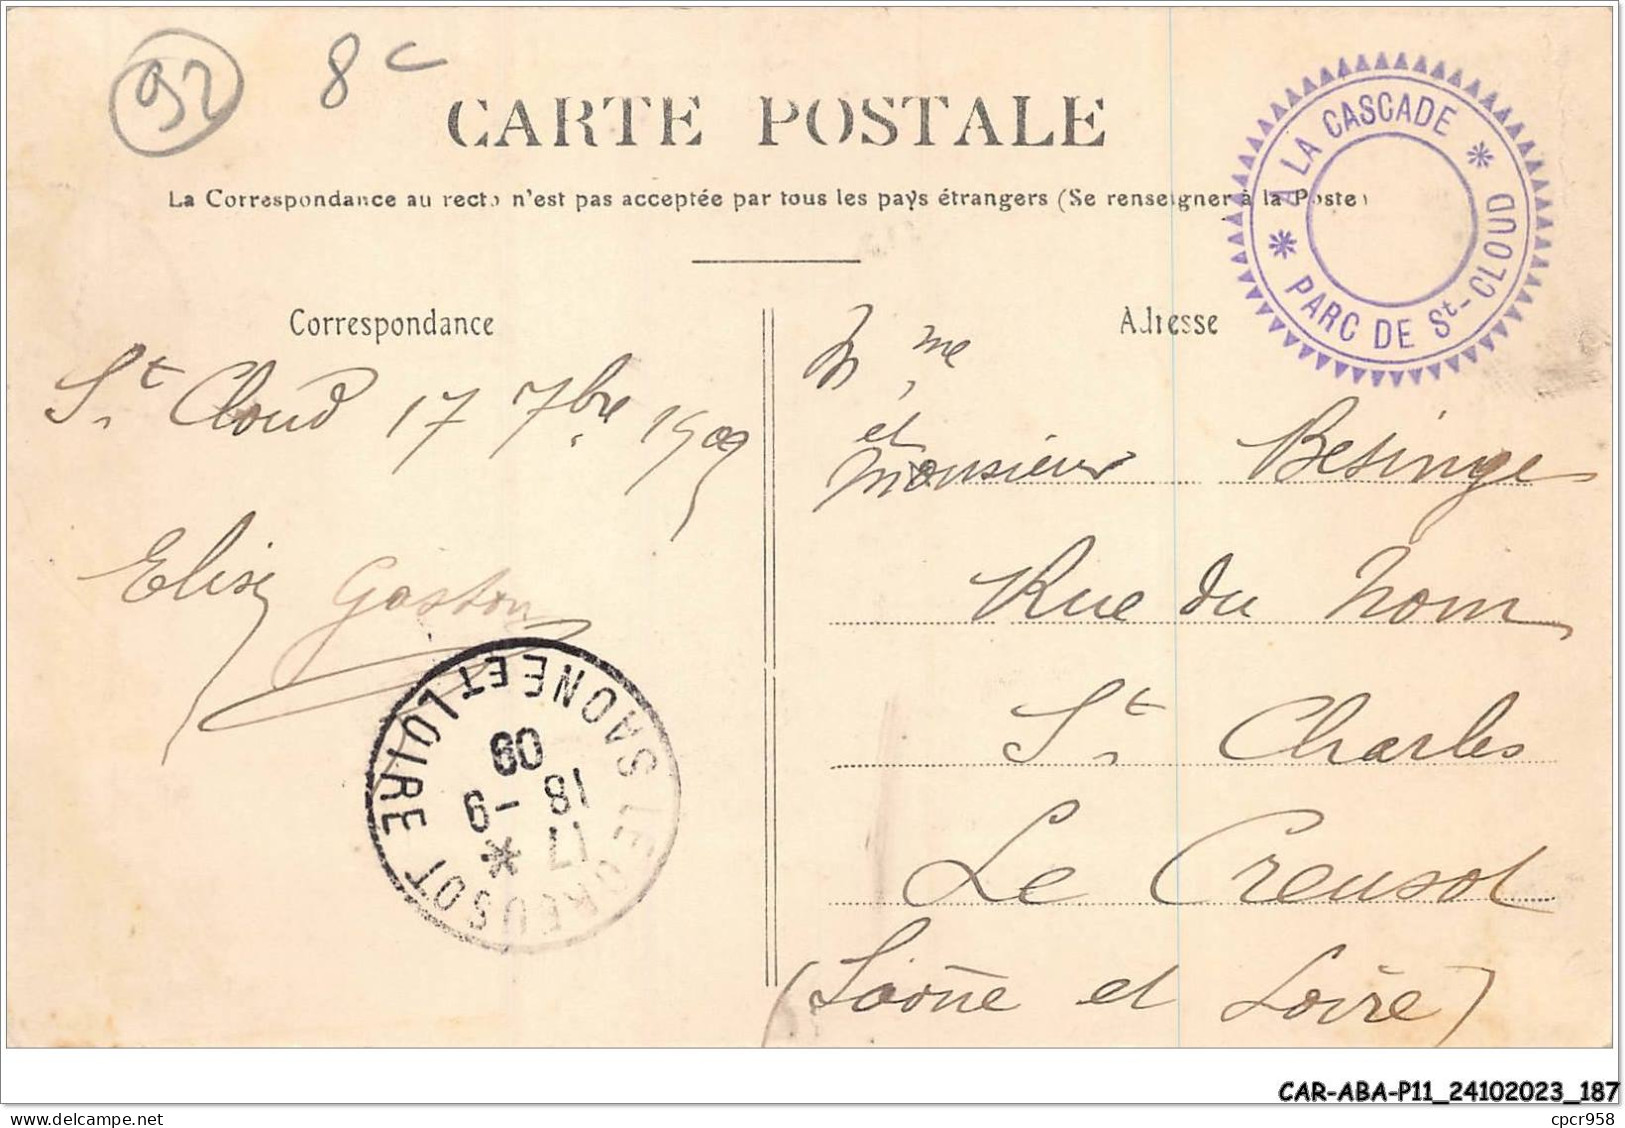 92 8c
CARTE POSTALE
La Correspondance au recto n'est pas acceptée par tous les pays étrangers (Se renseigner à la Poste)
* A LA CASCADE *
PARC DE St-CLOUD
Correspondance
St Cloud 17 7bre 1909
Elise Gaston
SAONE ET LOIRE
LE CREUSOT
17 *
18 -9
09
Adresse
Mme
et
Monsieur Besinge
Rue du Nom
St Charles
Le Creusot
(Saône et Loire)
CAR-ABA-P11_24102023_187
cpcr958